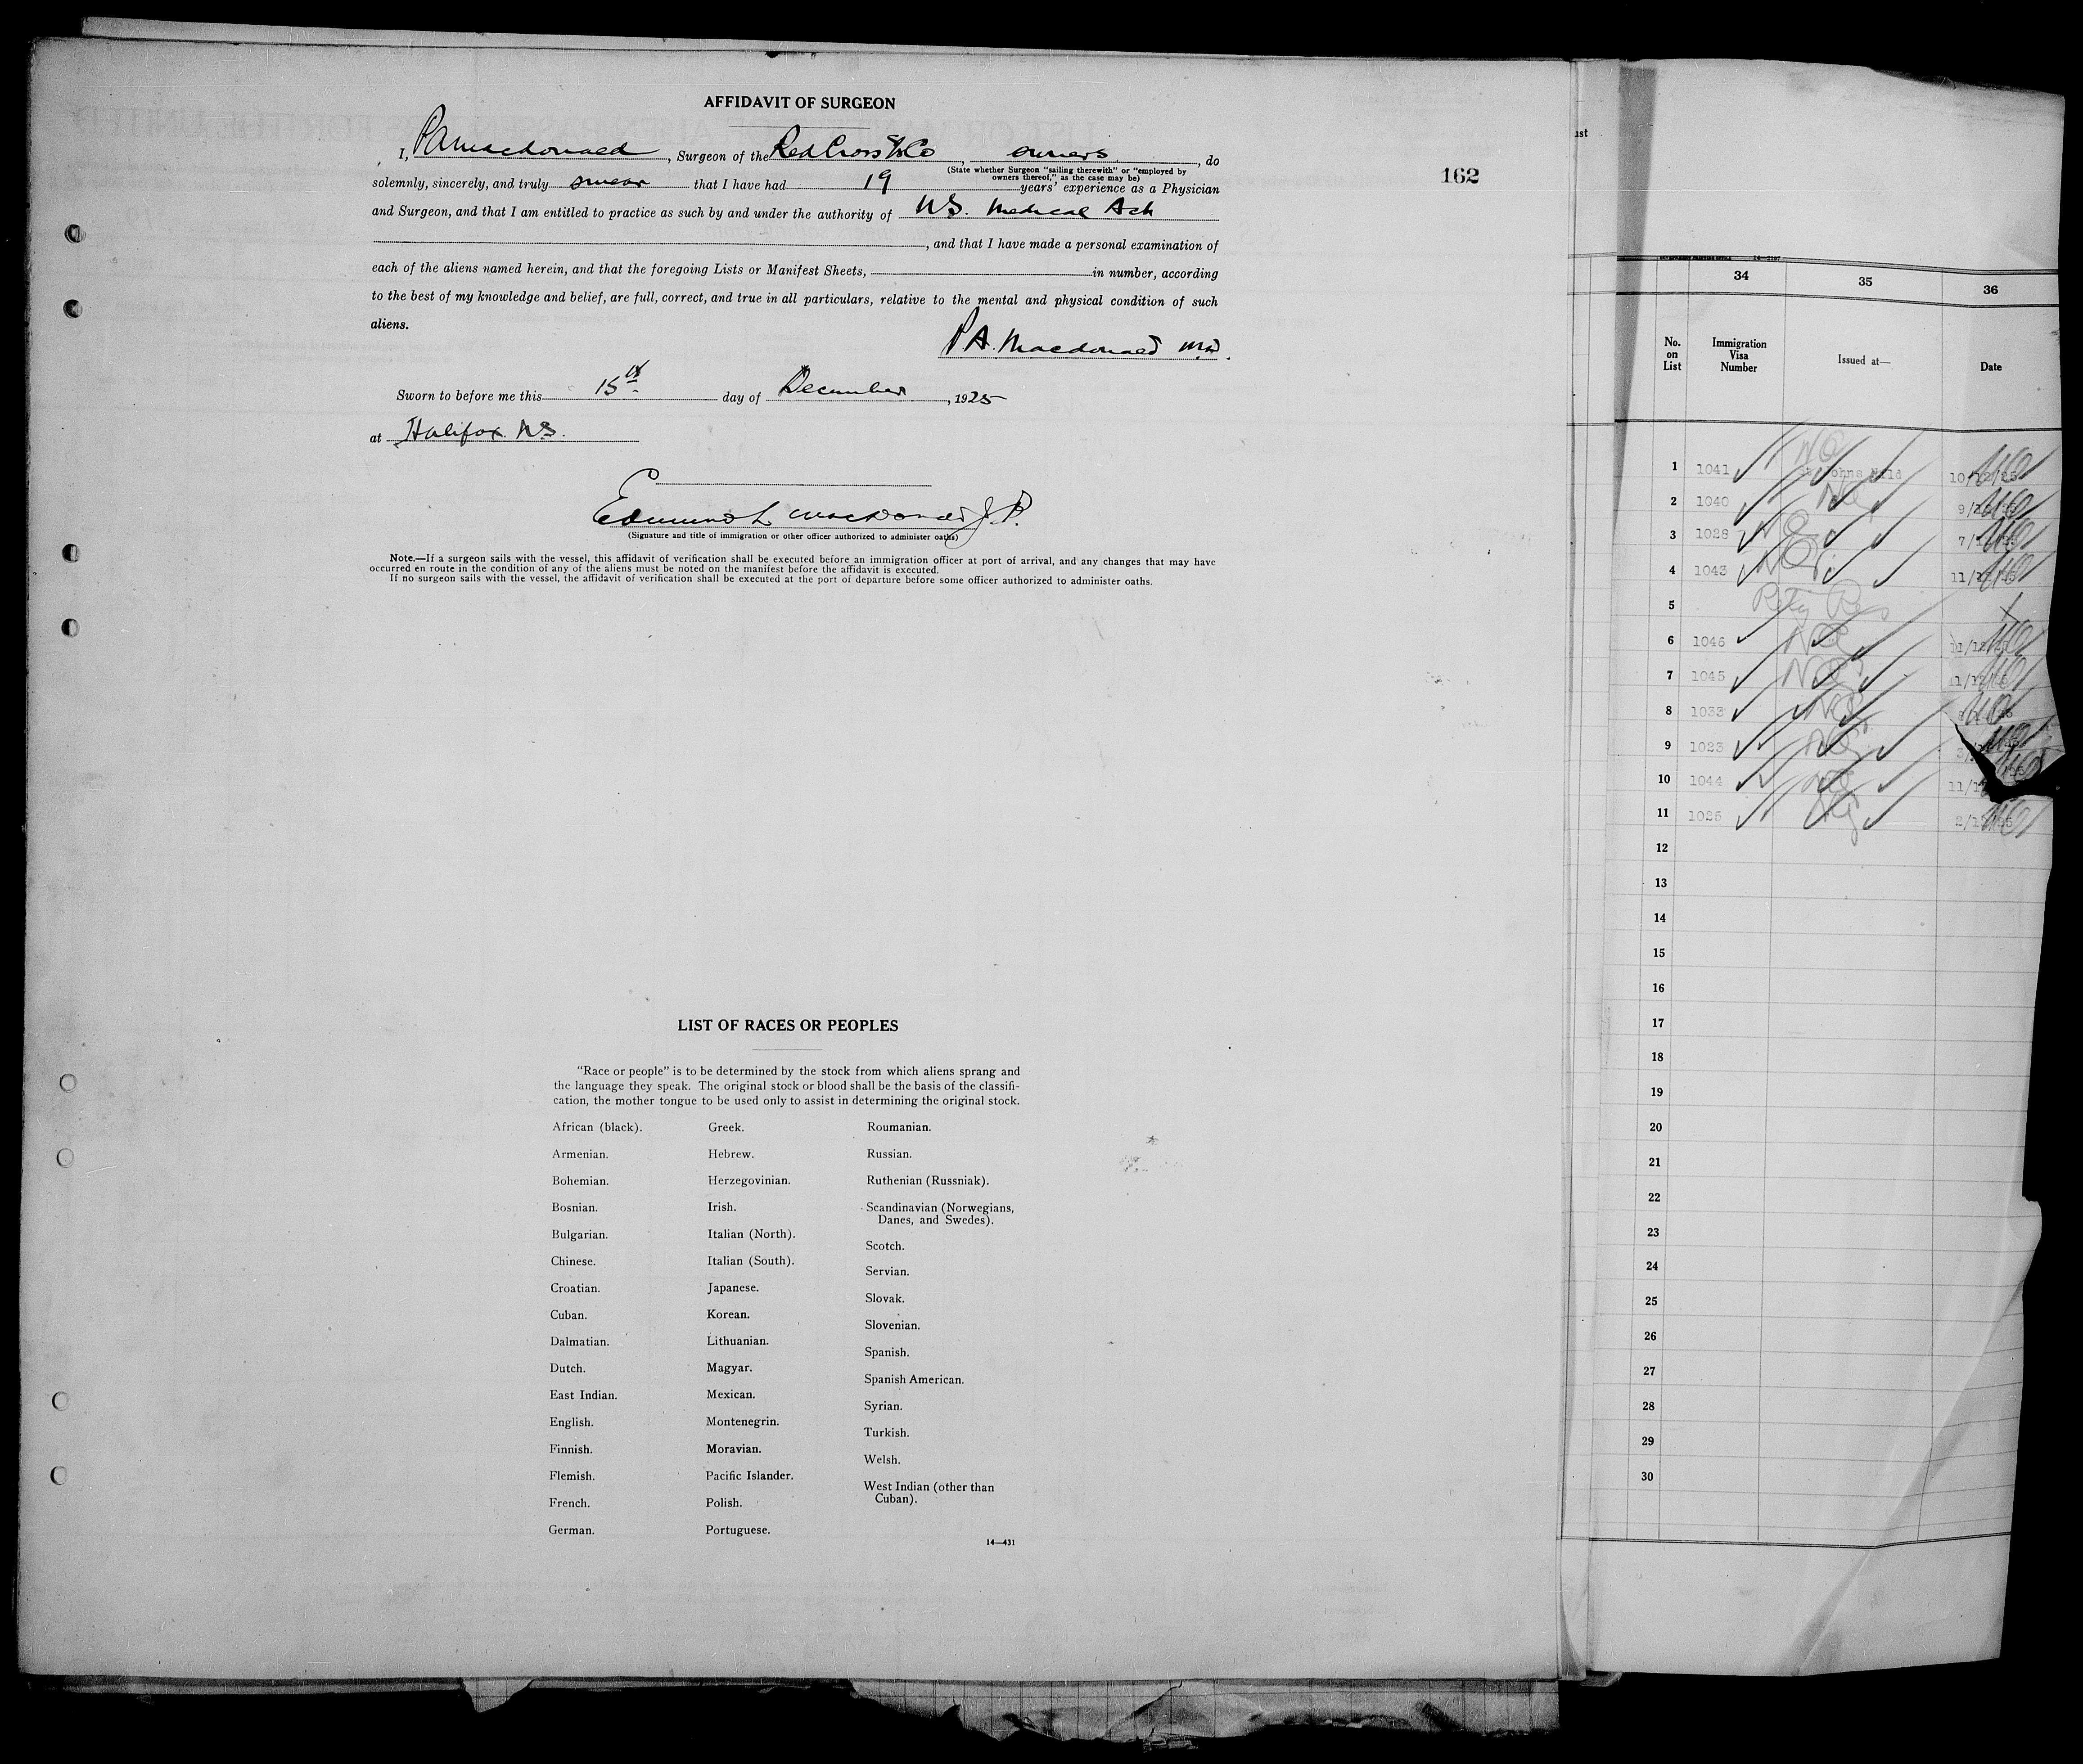 AFFIDAVIT OF SURGEON
I, P A Macdonald, Surgeon of the Red Cross SS Co, owners, do
(State whether Surgeon "sailing therewith" or "employed by
owners thereof," as the case may be)
solemnly, sincerely, and truly swear that I have had 19 years' experience as a Physician
and Surgeon, and that I am entitled to practice as such by and under the authority of N.S. Medical Act
, and that I have made a personal examination of
each of the aliens named herein, and that the foregoing Lists or Manifest Sheets, in number, according
to the best of my knowledge and belief, are full, correct, and true in all particulars, relative to the mental and physical condition of such
aliens.
P A. Macdonald M.D.
Sworn to before me this 15th day of December, 1925
at Halifax N.S.
Edmund L MacDonald J.P.
(Signature and title of immigration or other officer authorized to administer oaths)
Note.—If a surgeon sails with the vessel, this affidavit of verification shall be executed before an immigration officer at port of arrival, and any changes that may have
occurred en route in the condition of any of the aliens must be noted on the manifest before the affidavit is executed.
If no surgeon sails with the vessel, the affidavit of verification shall be executed at the port of departure before some officer authorized to administer oaths.
162
LIST OF RACES OR PEOPLES
"Race or people" is to be determined by the stock from which aliens sprang and
the language they speak. The original stock or blood shall be the basis of the classifi-
cation, the mother tongue to be used only to assist in determining the original stock.
African (black).
Armenian.
Bohemian.
Bosnian.
Bulgarian.
Chinese.
Croatian.
Cuban.
Dalmatian.
Dutch.
East Indian.
English.
Finnish.
Flemish.
French.
German.
Greek.
Hebrew.
Herzegovinian.
Irish.
Italian (North).
Italian (South).
Japanese.
Korean.
Lithuanian.
Magyar.
Mexican.
Montenegrin.
Moravian.
Pacific Islander.
Polish.
Portuguese.
Roumanian.
Russian.
Ruthenian (Russniak).
Scandinavian (Norwegians,
Danes, and Swedes).
Scotch.
Servian.
Slovak.
Slovenian.
Spanish.
Spanish American.
Syrian.
Turkish.
Welsh.
West Indian (other than
Cuban).
14—431
34 35 36
No.
on
List
Immigration
Visa
Number
Issued at—
Date
1 1041 10/12/25
2 1040
3 1028
4 1043
5
6 1046
7 1045
8 1033
9 1023
10 1044
11 1025
12
13
14
15
16
17
18
19
20
21
22
23
24
25
26
27
28
29
30